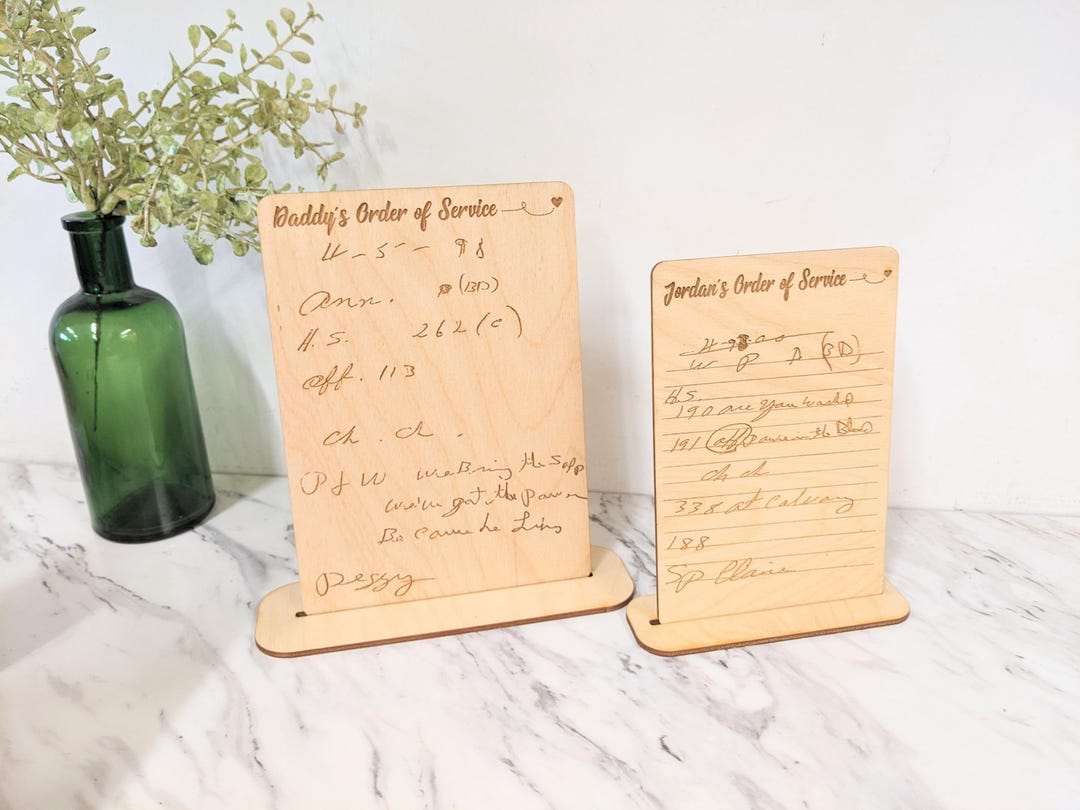 Daddy's Order of Service
4-5-98
Ann. (BD)
H.S. 262 (c)
off. 113
ch. ch.
P & W we Bring the
we've got the power
Because he Livs
Peggy
Jordan's Order of Service
W P (BD)
H.S.
190 are you washd
191 off power in the Blood
ch ch
338 at Calvary
188
Sp Claire